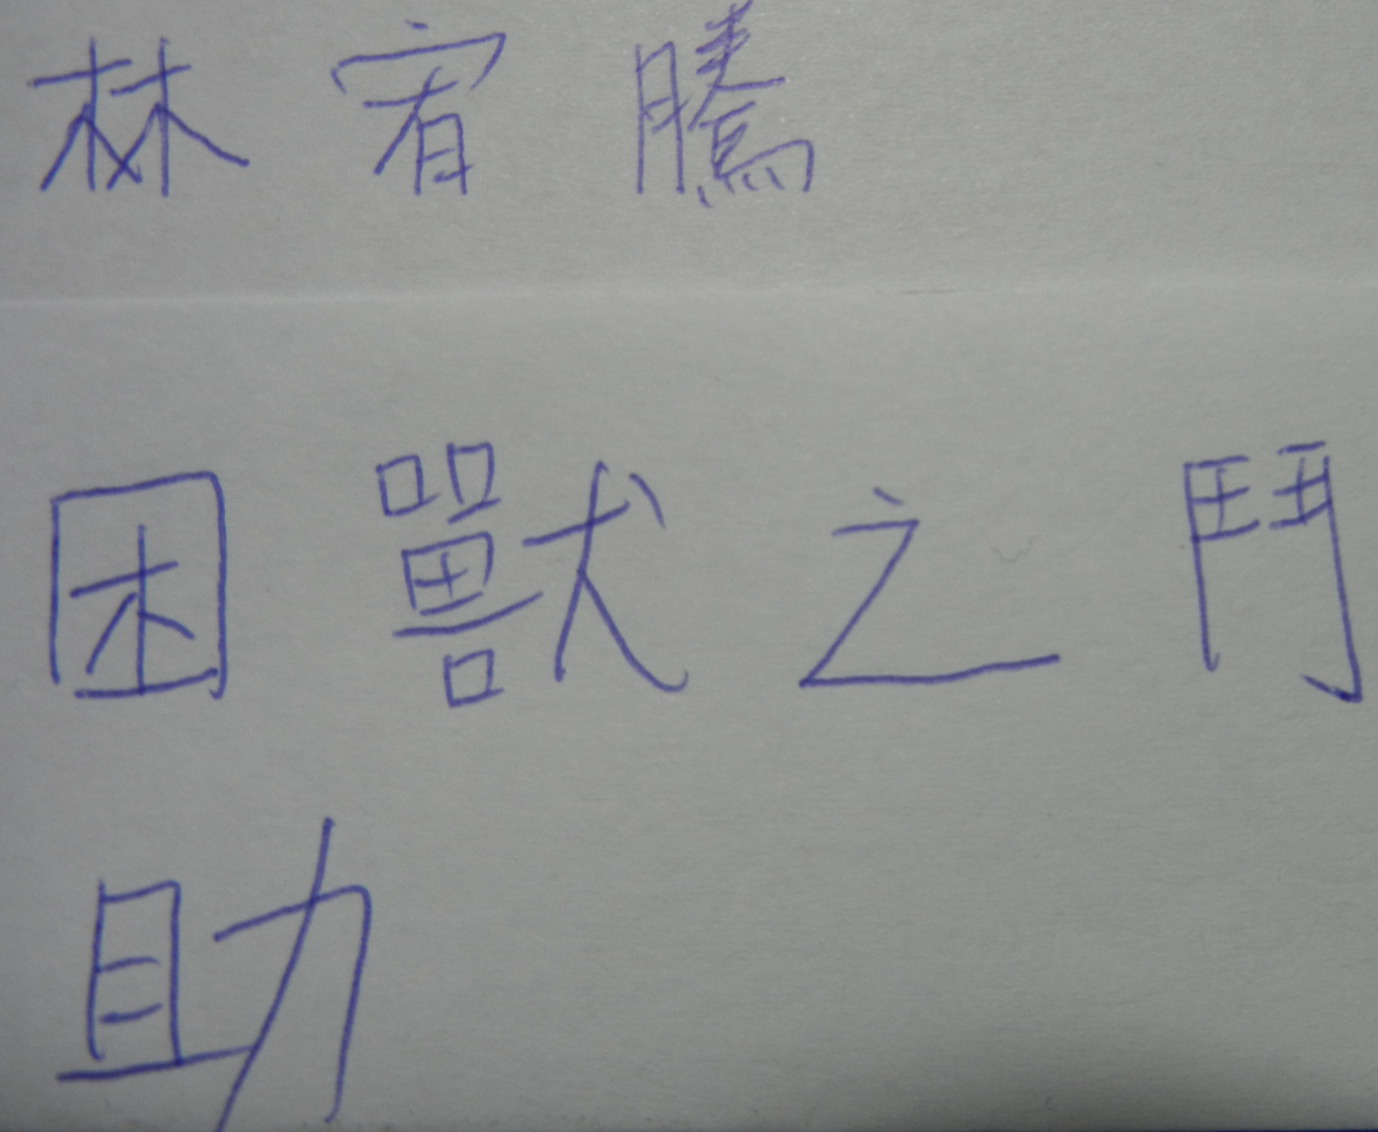 林宥騰
困獸之鬥
助